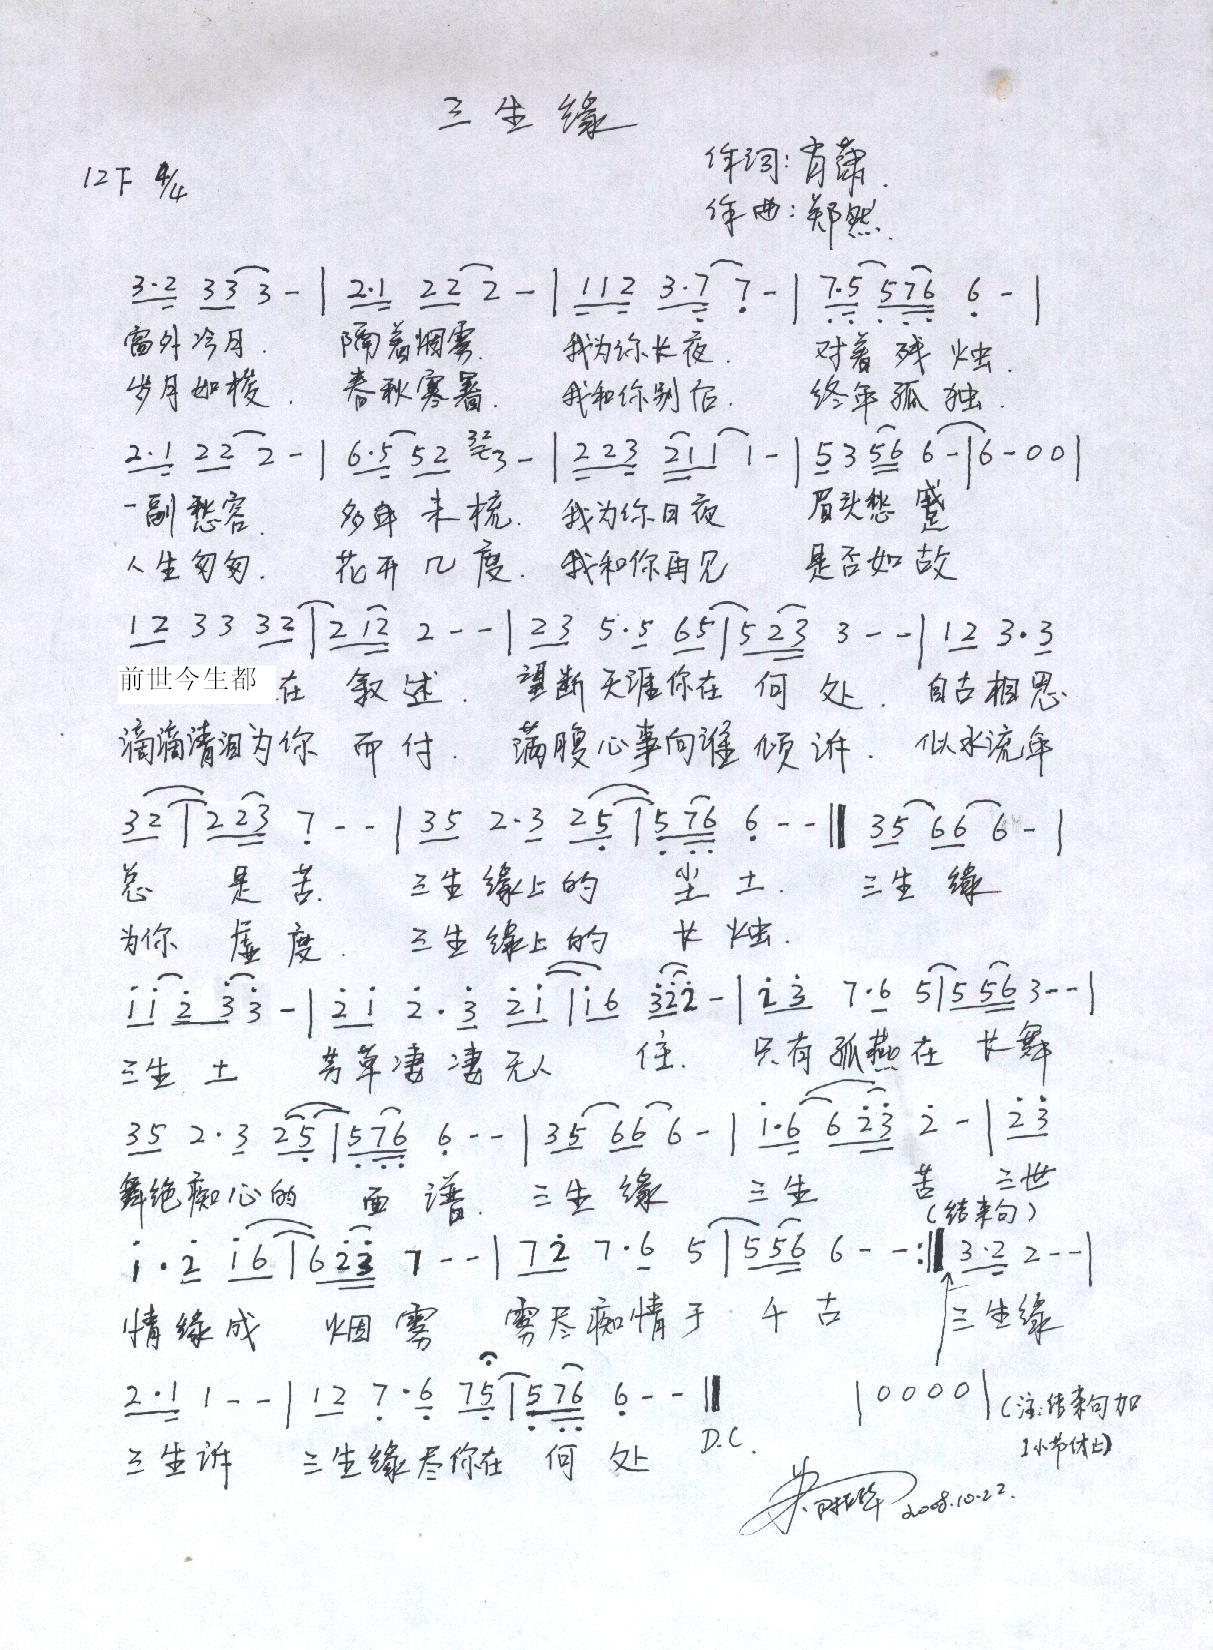 三生缘
作词:肖萧.
12下 4/4
作曲:郑然.
3·2 33 3 - | 2·1 22 2 - | 112 3·7 7 - | 7·5 576 6 - |
窗外冷月. 隔着烟雾. 我为你长夜. 对着残烛.
岁月如梭. 春秋寒暑. 我和你别后. 终年孤独.
2·1 22 2 - | 6·5 52 32 3 - | 223 211 1 - | 5 3 56 6 - | 6 - 0 0 |
一副愁容. 多年未梳. 我为你日夜 眉头愁蹙
人生匆匆. 花开几度. 我和你再见 是否如故
12 3 3 32 | 212 2 - - | 23 5·5 65 | 523 3 - - | 12 3·3
前世今生都在 叙述. 望断天涯你在 何处. 自古相思
滴滴清泪为你 而付. 满腹心事向谁 倾诉. 似水流年
32 | 223 7 - - | 35 2·3 25 | 576 6 - - || 35 66 6 - |
总 是苦. 三生缘上的 尘土. 三生缘
为你 虚度. 三生缘上的 长烛.
11 2 3 3 - | 21 2·3 21 | 16 322 - | 23 7·6 5 | 556 3 - - |
三生土 芳草凄凄无人 住. 只有孤燕在 长舞
35 2·3 25 | 576 6 - - | 35 66 6 - | 1·6 623 2 - | 23
舞绝痴心的 面谱. 三生缘 三生 苦 三世
(结束句)
1·2 16 | 623 7 - - | 72 7·6 5 | 556 6 - - :|| 3·2 2 - - |
情缘成 烟雾 雾尽痴情于 千古 三生缘
2·1 1 - - | 12 7·6 75 | 576 6 - - || | 0 0 0 0 | (注:结束句加
三生诉 三生缘尽你在 何处 D.C. 1小节休止)
2008.10.22.